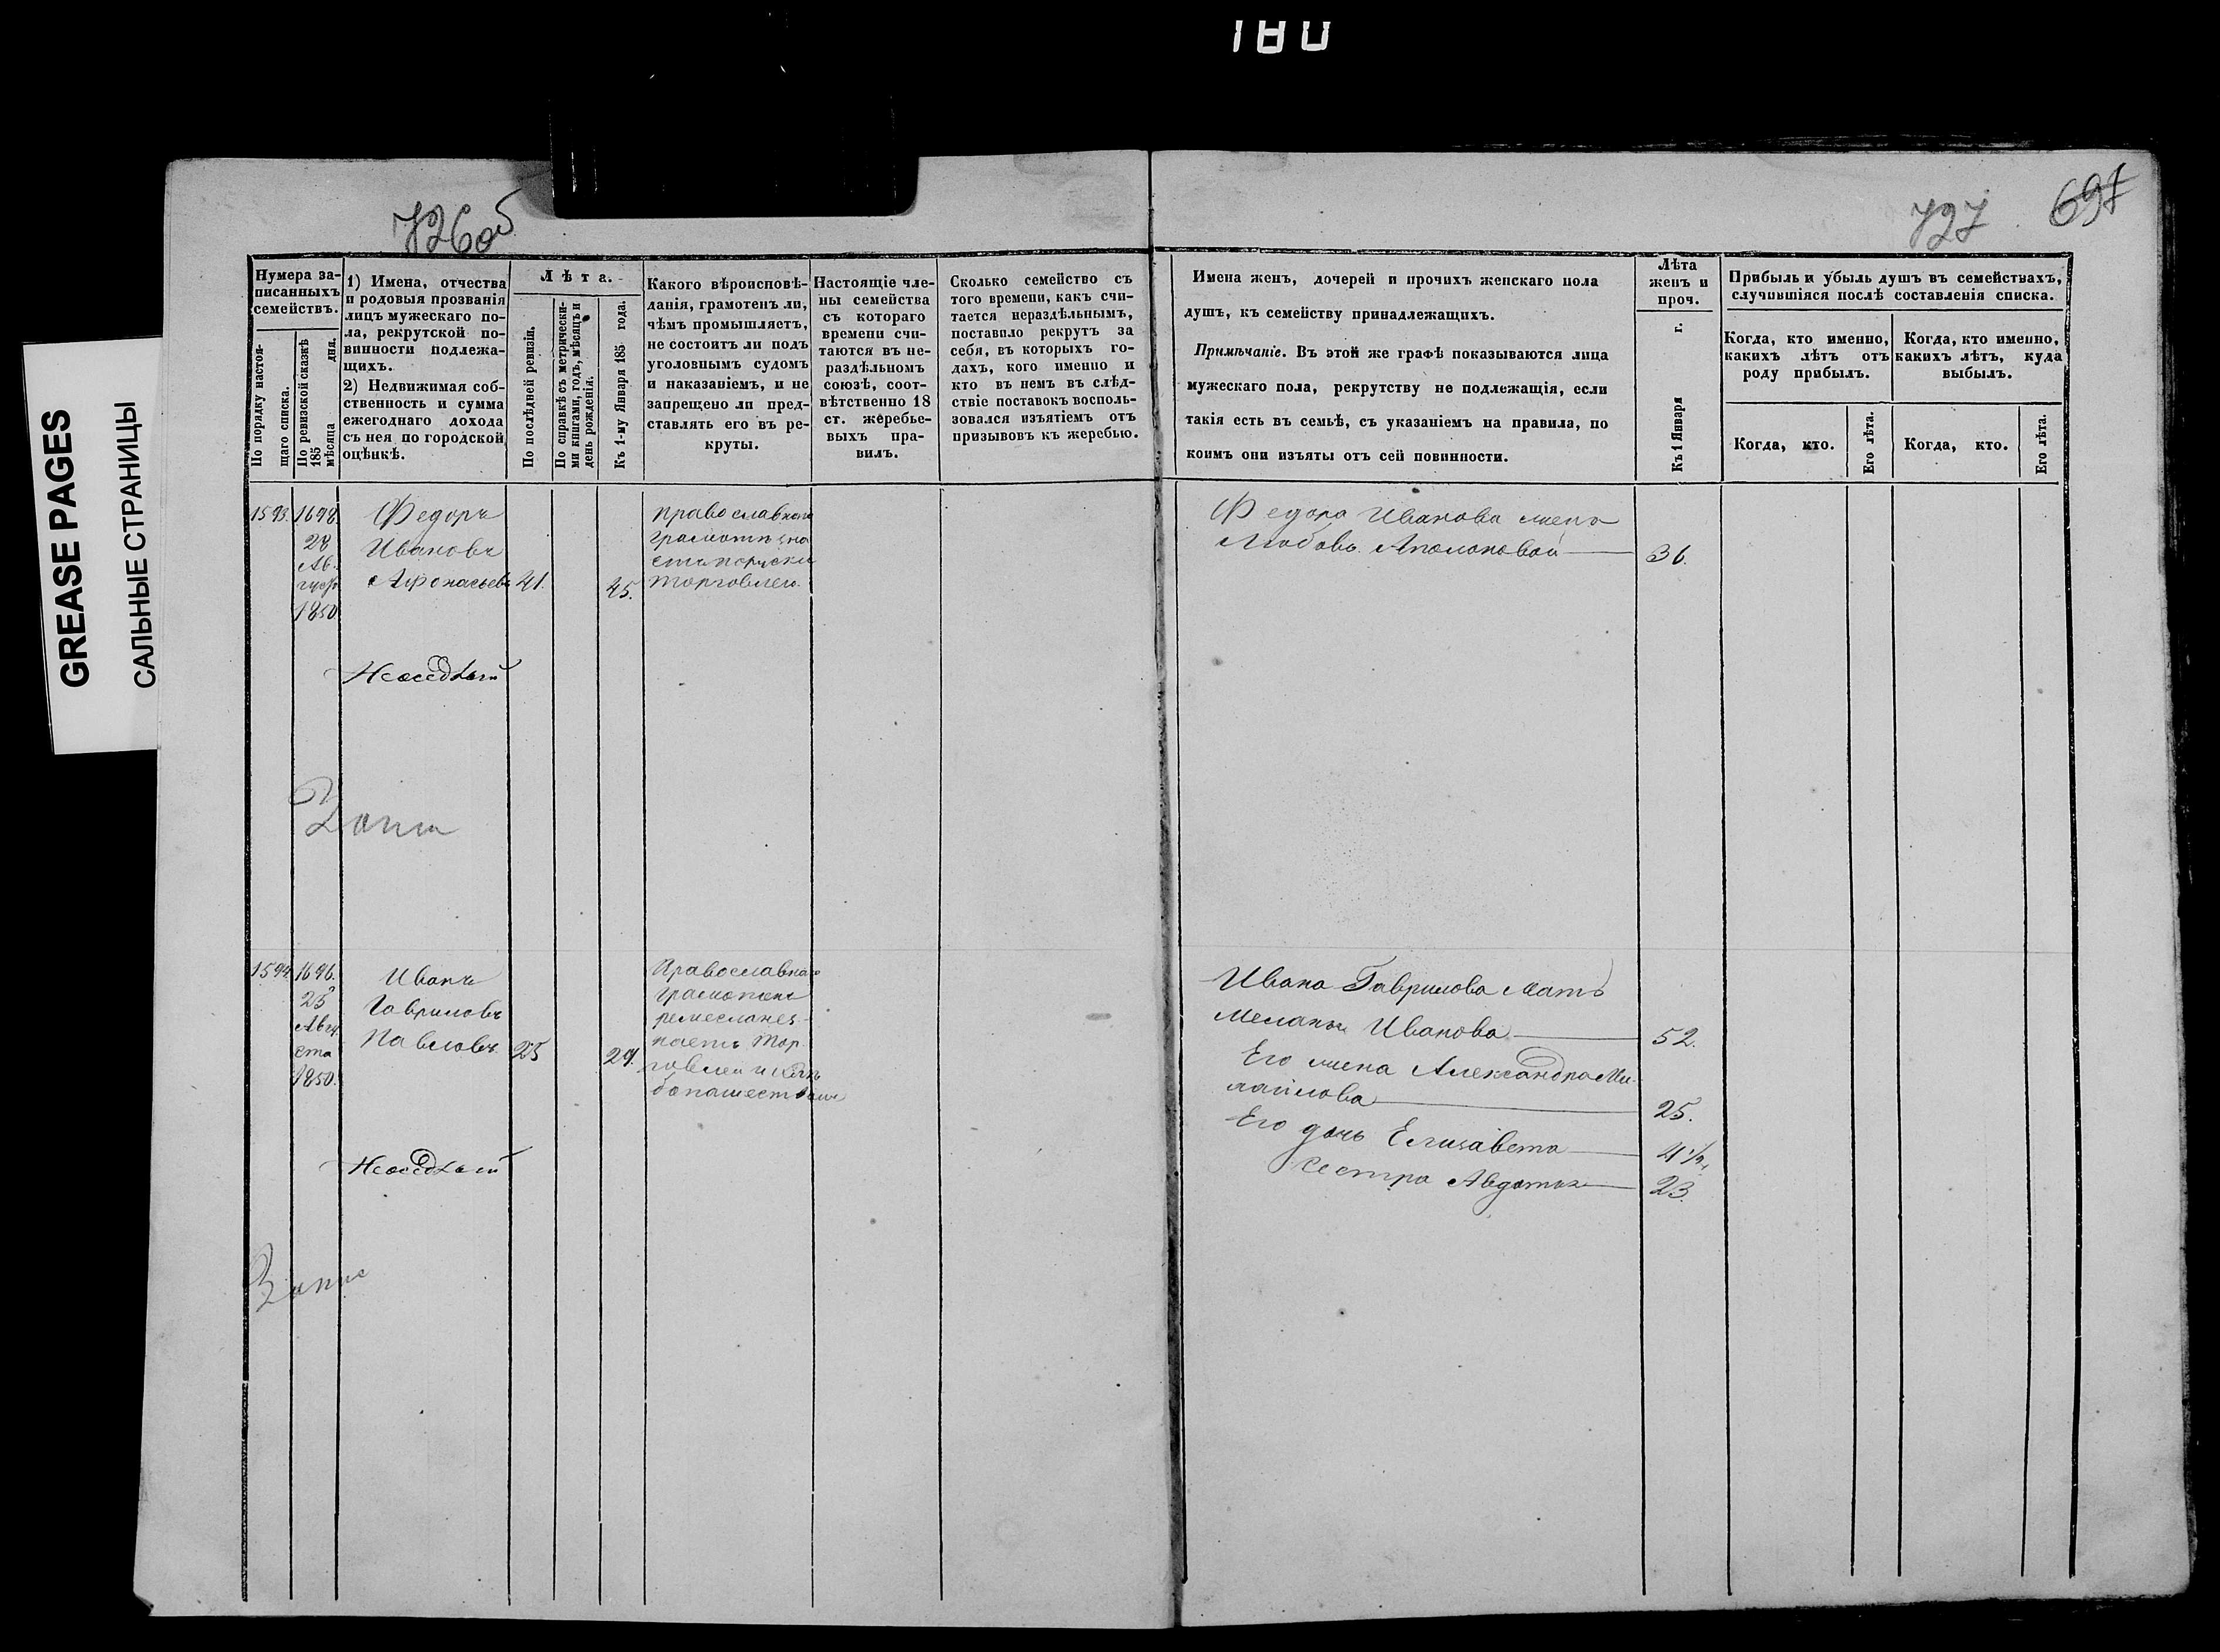 GREASE PAGES
САЛЬНЫЕ СТРАНИЦЫ
726об
727
697
Нумера за-
писанныхъ
семействъ.
По порядку настоя-
щаго списка.
По ревизской сказкѣ
185 дня.
мѣсяца
1) Имена, отчества
и родовыя прозванія
лицъ мужескаго по-
ла, рекрутской по-
винности подлежа-
щихъ.
2) Недвижимая соб-
ственность и сумма
ежегоднаго дохода
съ нея по городской
оцѣнкѣ.
Лѣта.
По послѣдней ревизіи.
По справкѣ съ метрически-
ми книгами, годъ, мѣсяцъ и
день рожденія.
Къ 1-му Января 185 года.
Какого вѣроисповѣ-
данія, грамотенъ ли,
чѣмъ промышляетъ,
не состоитъ ли подъ
уголовнымъ судомъ
и наказаніемъ, и не
запрещено ли пред-
ставлять его въ ре-
круты.
Настоящіе чле-
ны семейства
съ котораго
времени счи-
таются въ не-
раздѣльномъ
союзѣ, соот-
вѣтственно 18
ст. жеребье-
выхъ пра-
вилъ.
Сколько семейство съ
того времени, какъ счи-
тается нераздѣльнымъ,
поставило рекрутъ за
себя, въ которыхъ го-
дахъ, кого именно и
кто въ немъ въ слѣд-
ствіе поставокъ восполь-
зовался изъятіемъ отъ
призывовъ къ жеребью.
Имена женъ, дочерей и прочихъ женскаго пола
душъ, къ семейству принадлежащихъ.
Примѣчаніе. Въ этой же графѣ показываются лица
мужескаго пола, рекрутству не подлежащія, если
такія есть въ семьѣ, съ указаніемъ на правила, по
коимъ они изъяты отъ сей повинности.
Лѣта
женъ и
проч.
Къ 1 Января г.
Прибыль и убыль душъ въ семействахъ,
случившіяся послѣ составленія списка.
Когда, кто именно,
какихъ лѣтъ отъ
роду прибылъ.
Когда, кто именно,
какихъ лѣтъ, куда
выбылъ.
Когда, кто.
Его лѣта.
Когда, кто.
Его лѣта.
1593.
1698.
28
Ав-
густа
1850
Федоръ
Ивановъ
Афонасьевъ
41.
45.
православнаго
торговлею.
Федора Иванова жена
Любовь Аполоновой
36.
Неоседлый
1594
1696.
25
Авгу
ста
1850.
Иванъ
Гавриловъ
Павловъ
25
29.
Православнаго
грамотенъ
тор
Ивана Гаврилова мать
Меланья Иванова
52.
Его жена Александра Ми-
хайлова
25.
Его дочь Елизавета
4 1/2
сестра Авдотья
23.
Неоседлый